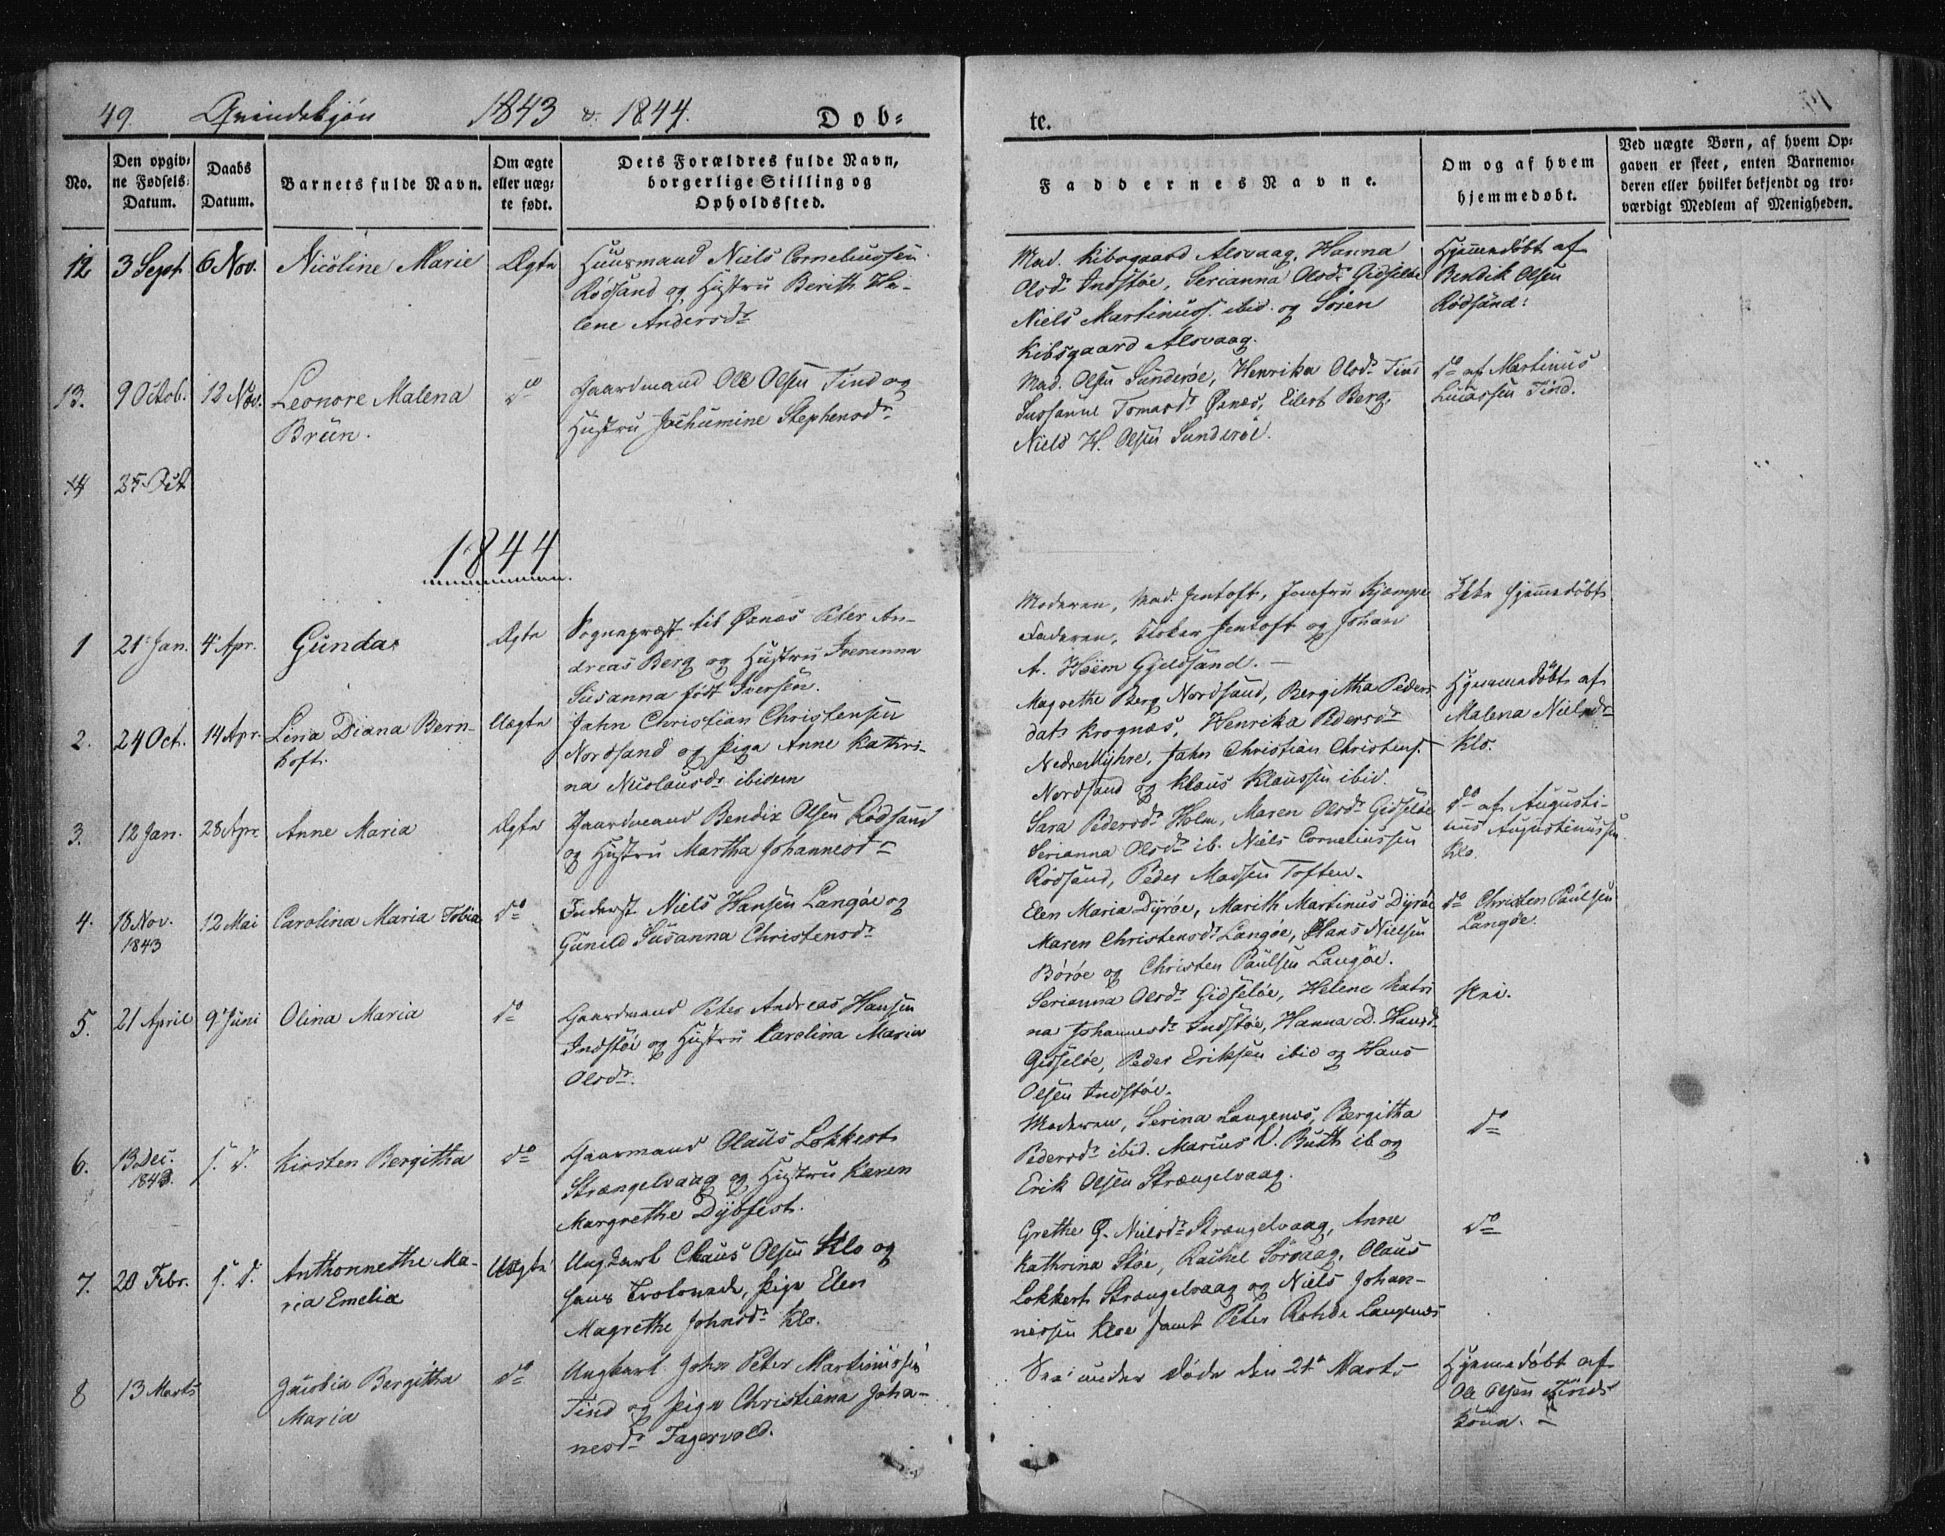 49. Qvindekjön 1843 & 1844. Døb-
te.
No.
Den opgiv-
ne Fødsels-
Datum.
Daabs
Datum.
Barnets fulde Navn.
Om ægte
eller uæg-
te født.
Dets Forældres fulde Navn,
borgerlige Stilling og
Opholdssted.
Faddernes Navne.
Om og af hvem
hjemmedøbt.
Ved uægte Børn, af hvem Op-
gaven er skeet, enten Barnemo-
deren eller hvilket bekjendt og tro-
værdigt Medlem af Menigheden.
12 3 Sept. 6 Nov. Nicoline Marie Ægte
Huusmand Niels Corneliussen
Rödsand og Hustru Berith He-
lene Andersdr
Mad. Kibsgaard Alsvaag, Hanna
Olsdr Indstøe, Serianna Olsdr Gidsløe
Niels Martinuss. ibid. og Sören
Kibsgaard Alsvaag.
Hjemmedöbt af
Bendik Olsen
Rödsand.
13. 9 Octob. 12 Nov. Leonore Malena
Brün.
do
Gaardmand Ole Olsen Tind og
Hustru Jochumine Stephensdr
Mad. Olsen Sunderøe, Henrika Olsdr Tind
Susanne Tomasdr Øxnes, Eilert Berg,
Niels H. Olsen Sunderøe.
do af Martinus
Lucassen Tind.
14 25 Oct
1844
1 21 Jan. 4 Apr. Gunda Ægte
Sognepræst til Øxnes Peter An-
dreas Berg og Hustru Iveranna
Susanna født Iversen.
Moderen, Mad. Jentoft, Jomfru Kjempe
Faderen, Kloker Jentoft og Johan
A. Høim Gjeldsand. -
Ikke hjemmedøbt
2. 24 Oct. 14 Apr. Lina Diana Bern-
hoft.
Uægte
Jahn Christian Christensen
Nordsand og Pige Anne Kathri-
na Nicolausdr ibidem
Magrethe Berg Nordsand, Bergitha Peders
datr Krognæs, Henrika Pedersdr
Nedre Myhre, Jahn Christian Christens.
Nordsand og Klaus Klaussen ibid.
Hjemmedøbt af
Malena Nielsdr
Klo.
3. 12 Jan. 28 Apr. Anne Maria Ægte
Gaardmand Bendix Olsen Rödsand
og Hustru Martha Johannesdr
Sara Pedersdr Holm, Maren Olsdr Gidsløe
Serianna Olsdr ib. Niels Corneliussen
Rödsand, Peder Madsen Toften.
do af Augusti-
nus Augustinussen
Klo.
4. 18 Nov.
1843
12 Mai Carolina Maria Tobia do
Inderst Niels Hansen Langøe og
Gunild Susanna Christensdr
Elen Maria Dyrøe, Marith Martinus Dyrøe
Maren Christensdr Langøe, Hans Nielsen
Börøe og Christen Paulsen Langøe.
do Christen Paulsen
Langøe.
5. 21 April 9 Juni Olina Maria do
Gaardmand Peter Andreas Hansen
Indstøe og Hustru Karolina Maria
Olsdr.
Serianna Olsdr Gidsløe, Helene Katri
na Johannesdr Indstøe, Hanna D. Hansdr
Gidsløe, Peder Eriksen ibid og Hans
Olsen Indstøe.
Nei.
6. 13 Dec.
1843.
s. d. Kirsten Bergitha do
Gaarmand Olaus Lokkert
Strængelvaag og Hustru Karen
Margrethe Dybfest.
Moderen, Serina Langenes, Bergitha
Pedersdr ibid. Marius V. Buth ib og
Erik Olsen Strængelvaag.
do
7. 20 Febr. s. d. Anthonnethe Ma-
ria Emelia
Uægte
Ungkarl Claus Olsen Klo og
hans Trolovede, Pige Elen
Magrethe Johnsdr Klo.
Grethe G. Nielsdr Strængelvaag, Anne
Kathrina Støe, Rachel Sörvaag, Olaus
Lokkert Strængelvaag og Niels Johan-
nessen Kloe samt Peter Rohde Langenes
do
8 13 Marts Jacobia Bergitha
Maria
do
Ungkarl John Peter Martinussen
Tind og Pige Christiana Joha-
nesdr Fagervold.
See under Døde den 21 Marts
Hjemmedøbt af
Ole Olsen Tinds
kona. -